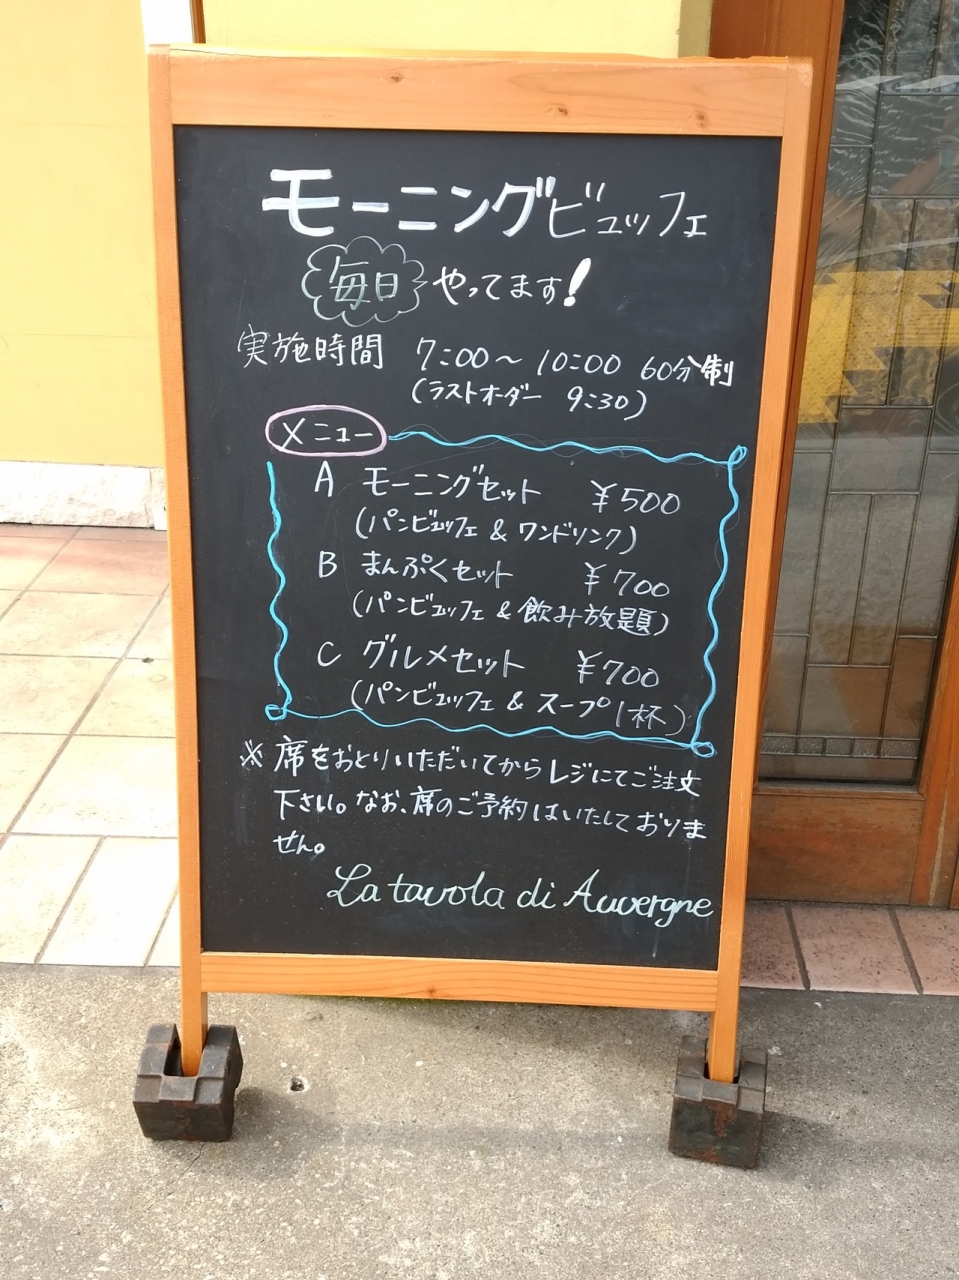 モーニングビュッフェ
毎日 やってます!
実施時間 7:00〜10:00 60分制
(ラストオーダー 9:30)
メニュー
A モーニングセット ¥500
(パンビュッフェ & ワンドリンク)
B まんぷくセット ¥700
(パンビュッフェ & 飲み放題)
C グルメセット ¥700
(パンビュッフェ & スープ1杯)
※ 席をおとりいただいてからレジにてご注文
下さい。なお、席のご予約はいたしておりま
せん。
La tavola di Auvergne